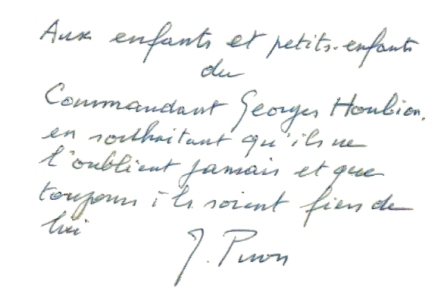 Aux enfants et petits-enfants
du
Commandant Georges Houbion.
en souhaitant qu'ils ne
l'oublient jamais et que
toujours ils soient fiers de
lui
J.